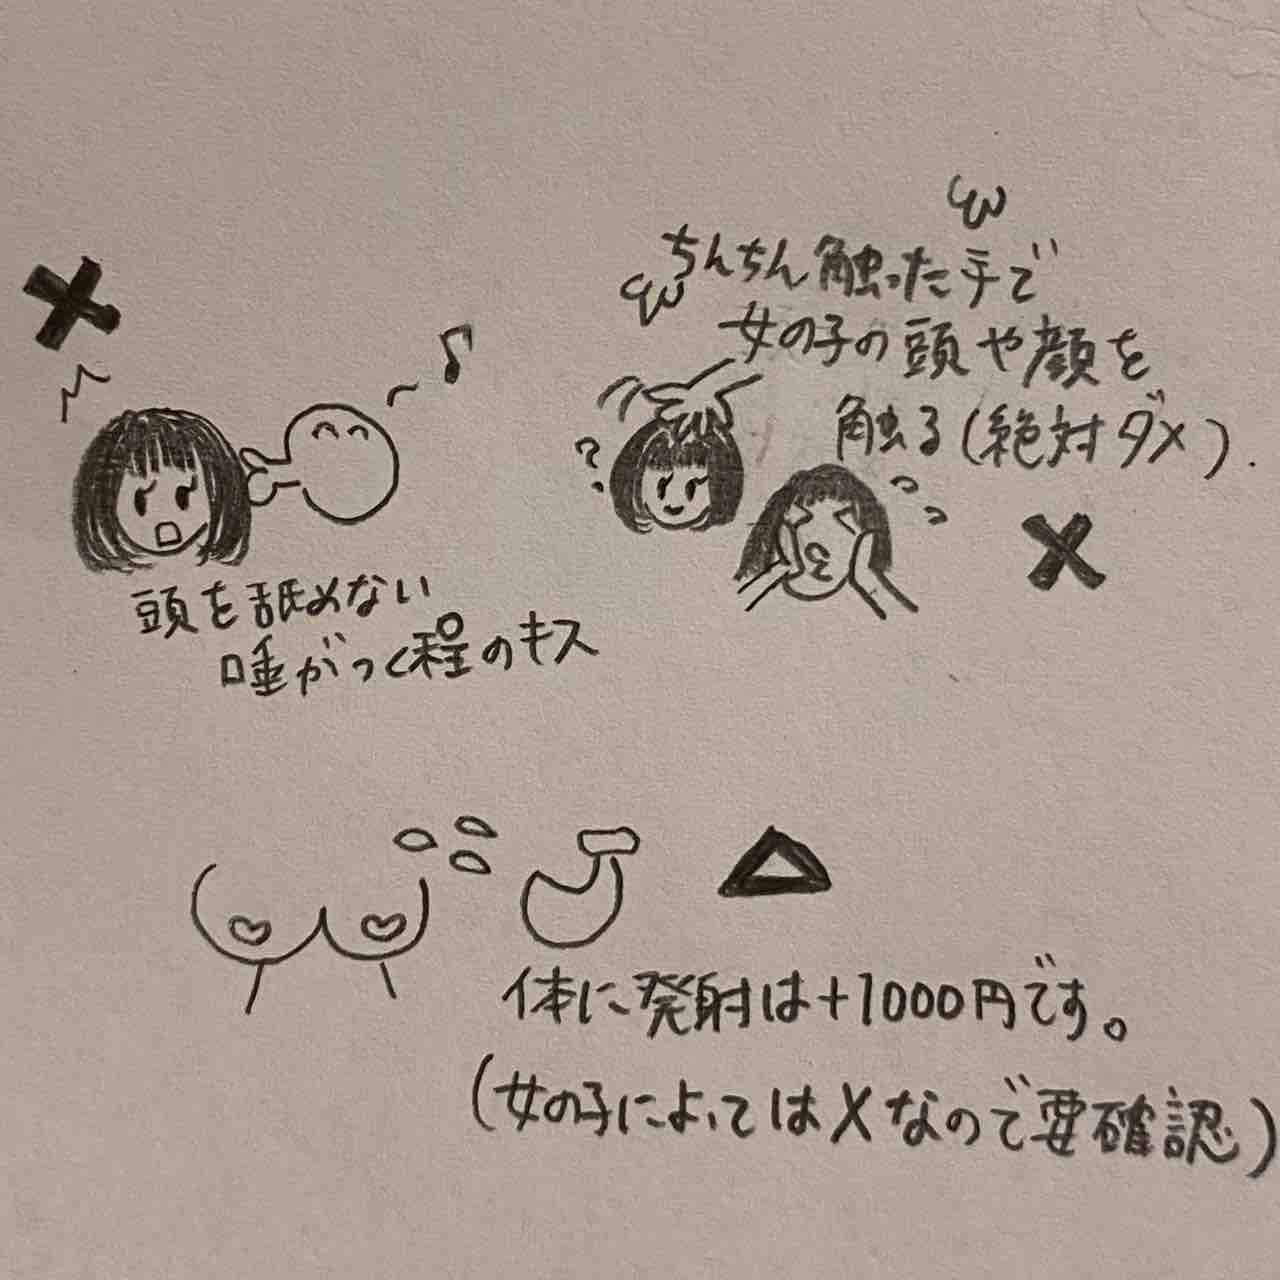 頭を舐めない
唾がつく程のキス
ちんちん触った手で
女の子の頭や顔を
触る(絶対ダメ).
体に発射は+1000円です。
(女の子によってはXなので要確認)